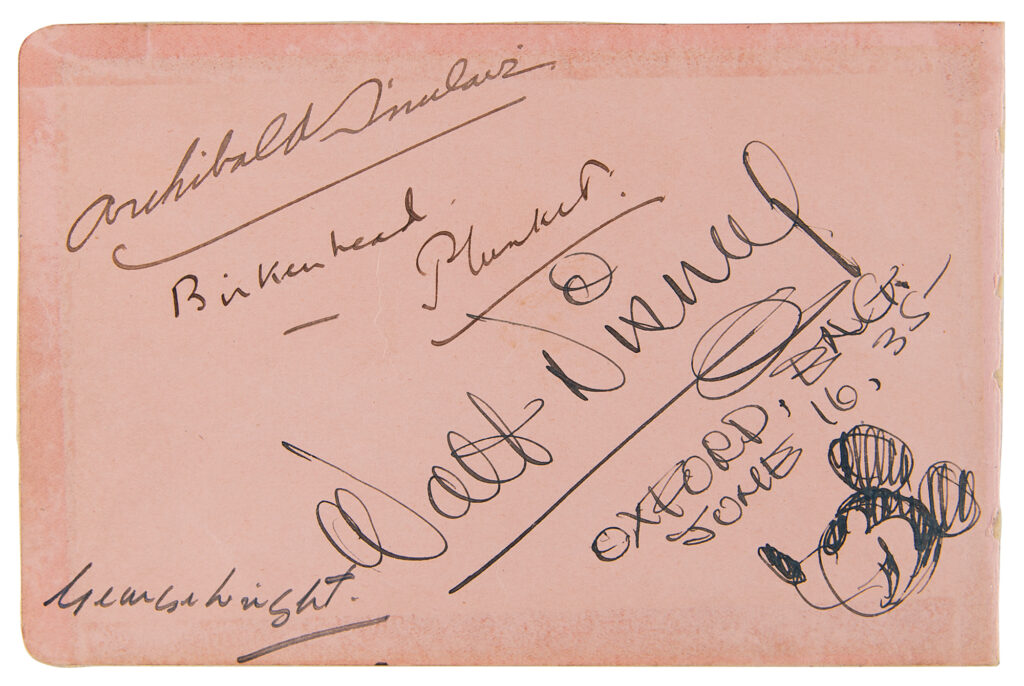 Archibald Sinclair
Birkenhead
Plunket.
Walt Disney
OXFORD, ENG.
JUNE 16, 35
George Wright.